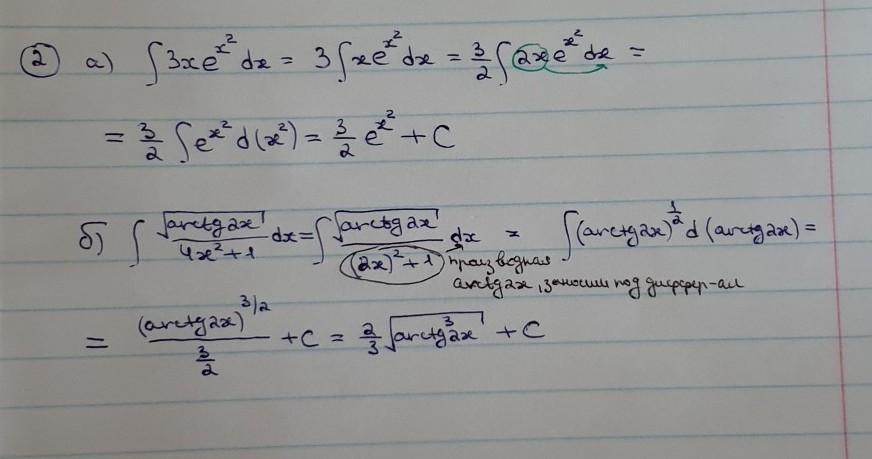 ② а) ∫3xe^{x^2} dx = 3∫xe^{x^2} dx = \frac{3}{2} ∫2xe^{x^2} dx =
= \frac{3}{2} ∫e^{x^2} d(x^2) = \frac{3}{2} e^{x^2} + C
б) ∫ \frac{\sqrt{arctg2x}}{4x^2+1} dx = ∫ \frac{\sqrt{arctg2x}}{(2x)^2+1} dx = ∫(arctg2x)^{\frac{1}{2}} d(arctg2x) =
производная
arctg2x, заносим под диффер-ал
= \frac{(arctg2x)^{3/2}}{\frac{3}{2}} + C = \frac{2}{3} \sqrt{arctg^3 2x} + C